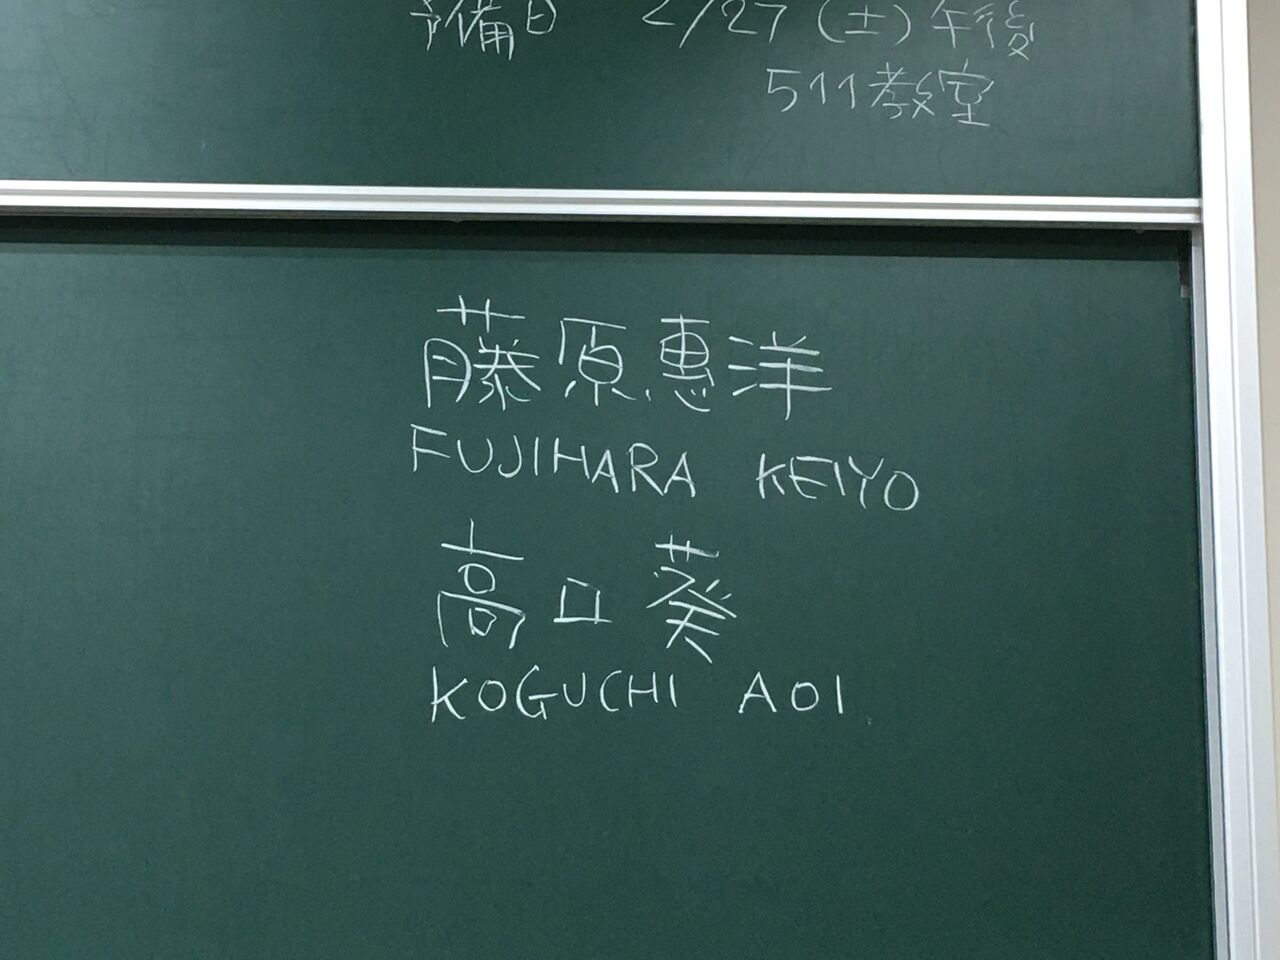 予備日 2/27(土)午後
511教室
藤原惠洋
FUJIHARA KEIYO
高口葵
KOGUCHI AOI